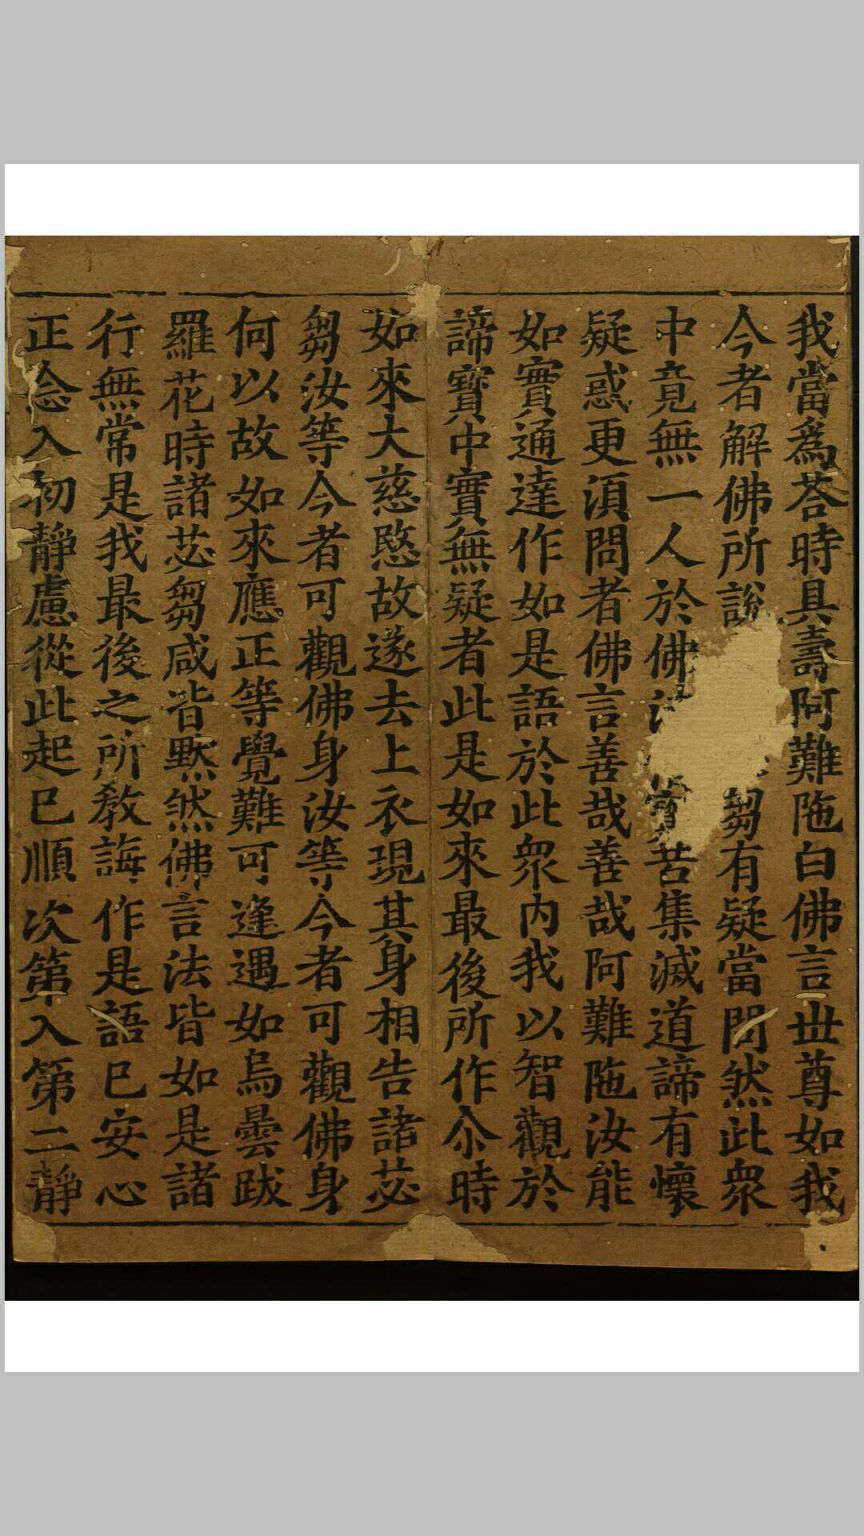 我當為荅時具壽阿難陁白佛言世尊如我
今者解佛所說芻有疑當問然此衆
中竟無一人於佛寶苦集滅道諦有懷
疑惑更湏問者佛言善哉善哉阿難陁汝能
如實通達作如是語於此衆內我以智觀於
諦寶中實無疑者此是如來最後所作尒時
如來大慈愍故遂去上衣現其身相告諸苾
芻汝等今者可觀佛身汝等今者可觀佛身
何以故如來應正等覺難可逢遇如烏曇跋
羅花時諸苾芻咸皆默然佛言法皆如是諸
行無常是我最後之所教誨作是語已安心
正念入初靜慮從此起已順次第入第二靜